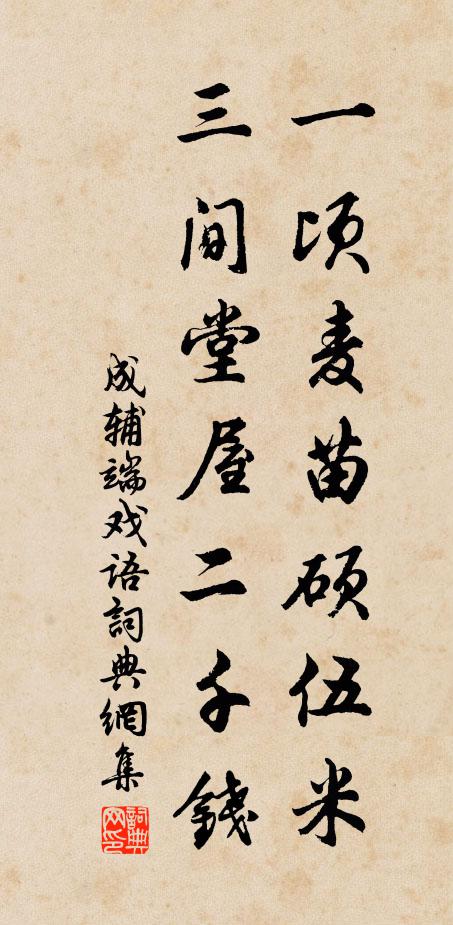 一顷麦苗硕伍米
三间堂屋二千錢
成辅端戏语詞典網集
詞典网印